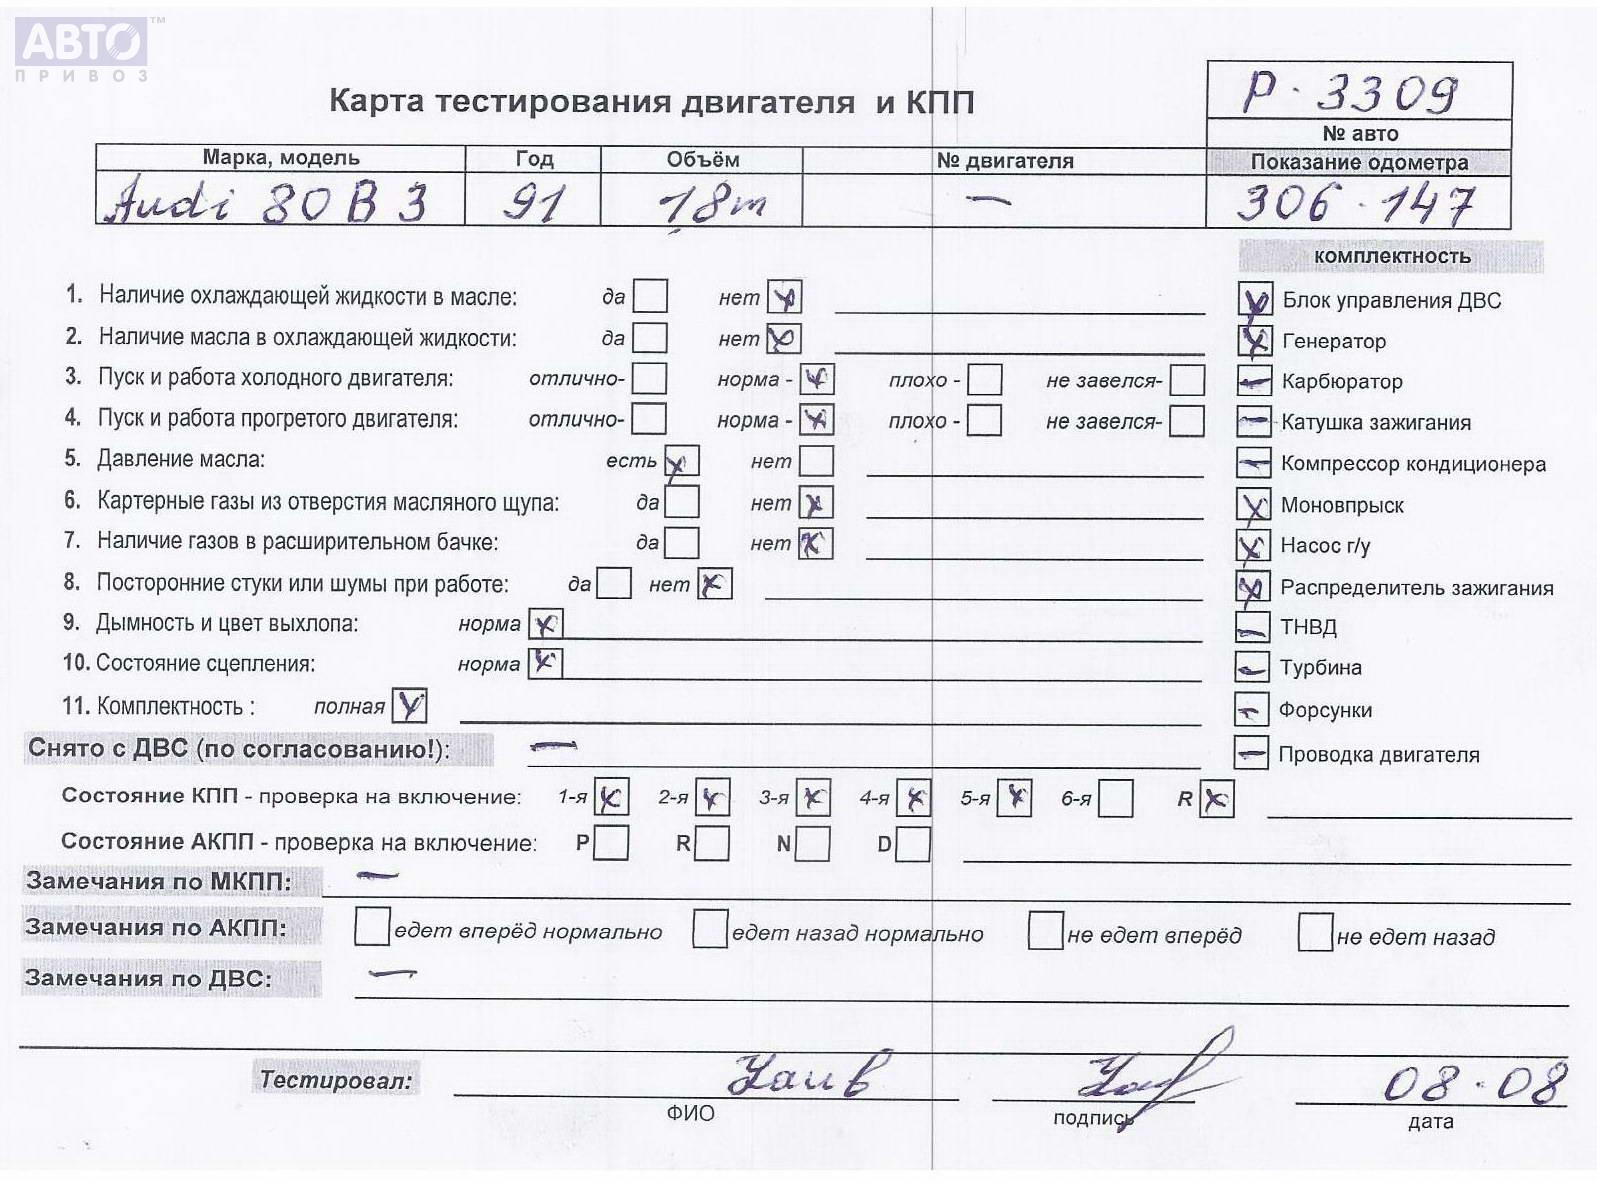 АВТО™
ПРИВОЗ
Карта тестирования двигателя и КПП
Р. 3309
№ авто
Марка, модель Год Объём № двигателя Показание одометра
Audi 80 B3 91 1,8m — 306.147
комплектность
1. Наличие охлаждающей жидкости в масле: да нет
Блок управления ДВС
2. Наличие масла в охлаждающей жидкости: да нет
Генератор
3. Пуск и работа холодного двигателя: отлично- норма - плохо - не завелся-
Карбюратор
4. Пуск и работа прогретого двигателя: отлично- норма - плохо - не завелся-
Катушка зажигания
5. Давление масла: есть нет
Компрессор кондиционера
6. Картерные газы из отверстия масляного щупа: да нет
Моновпрыск
7. Наличие газов в расширительном бачке: да нет
Насос г/у
8. Посторонние стуки или шумы при работе: да нет
Распределитель зажигания
9. Дымность и цвет выхлопа: норма
ТНВД
10. Состояние сцепления: норма
Турбина
11. Комплектность : полная
Форсунки
Снято с ДВС (по согласованию!): —
Проводка двигателя
Состояние КПП - проверка на включение: 1-я 2-я 3-я 4-я 5-я 6-я R
Состояние АКПП - проверка на включение: P R N D
Замечания по МКПП: —
Замечания по АКПП: едет вперёд нормально едет назад нормально не едет вперёд не едет назад
Замечания по ДВС: —
Тестировал: 08.08
ФИО подпись дата